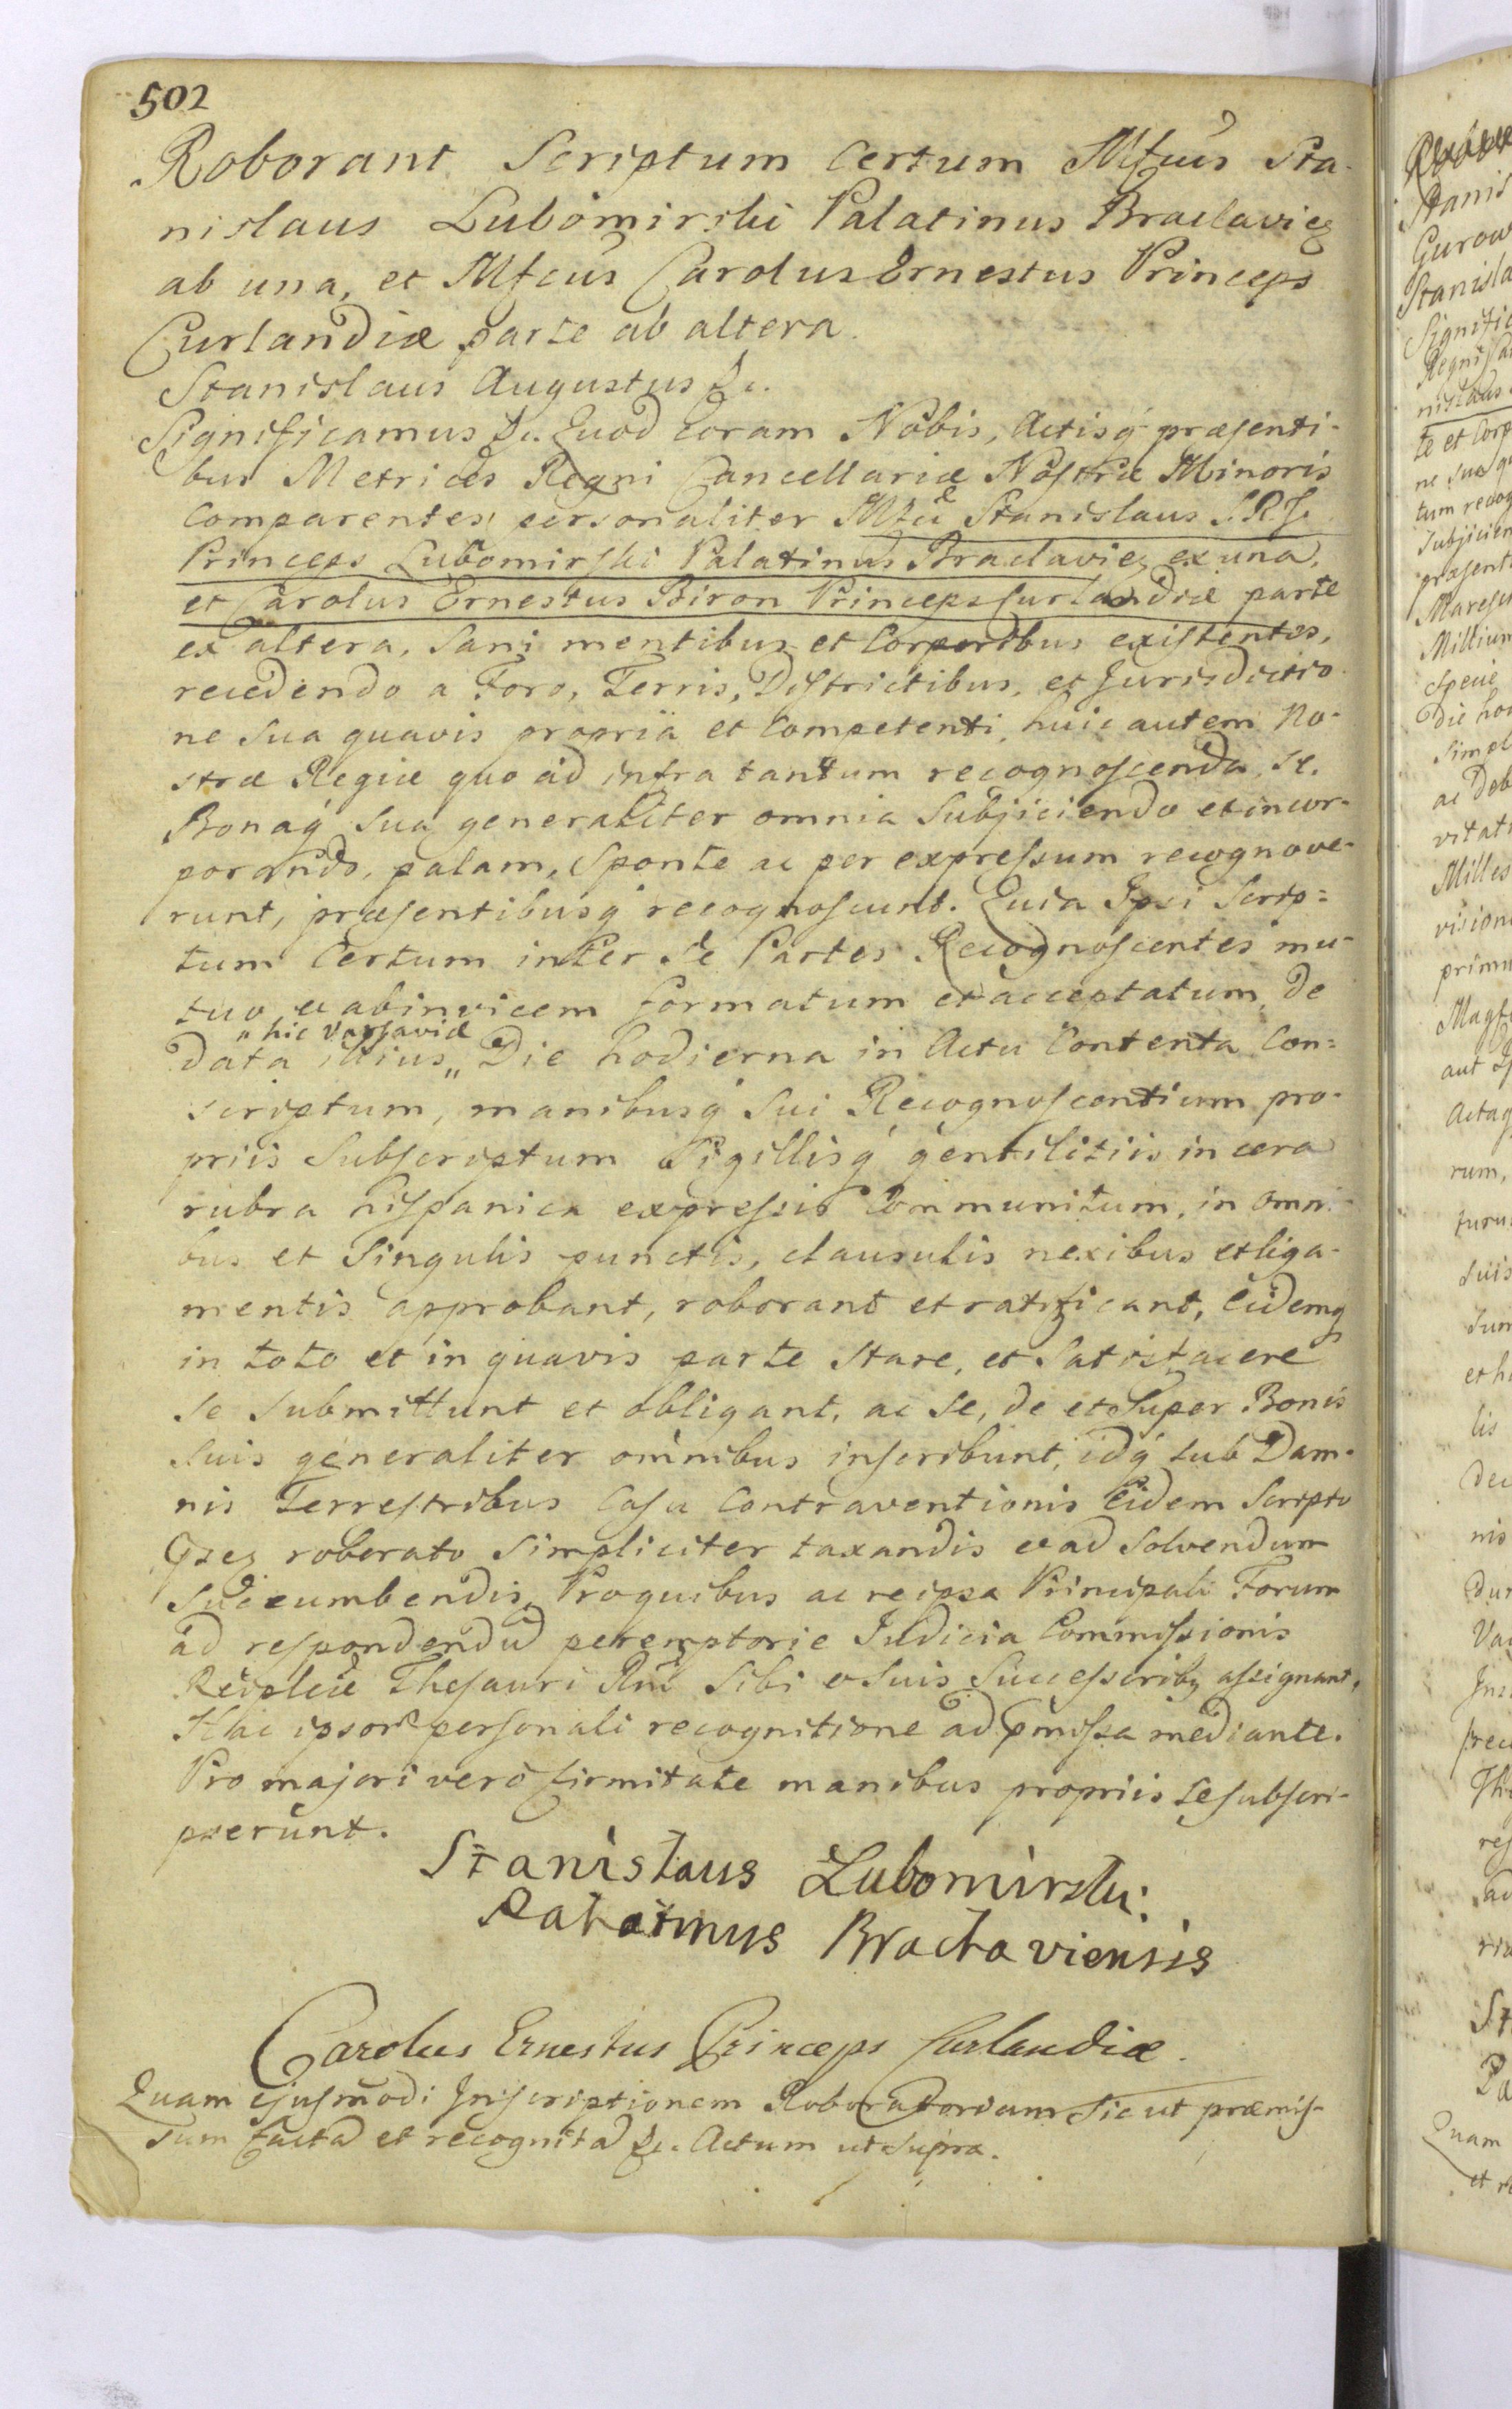 502
Roborant Scriptum Certum Mfcus Sta-
nislaus Lubomirski Palatinus Braclavieȝ
ab una, et Mfcus Carolus Ernestus Princeps
Curlandiæ parte ab altera.
Stanislaus Augustus &c.
Significamus &c. Quod Coram Nobis, Actisq́ præsenti-
bus Metrices Regni Cancellariæ Nostræ Minoris
Comparentes personaliter Mfcus Stanislaus S.R.J.
Princeps Lubomirski Palatinus Braclavieȝ ex una,
et Carolus Ernestus Biron Princeps Curlandiæ parte
ex altera, Sani mentibus et Corporibus existentes,
recedendo a Foro, Terris, Districtibus, et Jurisdictio-
ne Sua quavis propria et Competenti, huic autem No-
stræ Regiæ quo ad infra tantum recognoscenda, se.
Bonaq́ Sua generaliter omnia Subjiciendo et incor-
porando, palam, Sponte ac per expressum recognove-
runt, præsentibusq́ recognoscunt. Quia Ipsi Scrip=
tum Certum inter Se Partes Recognoscentes mu-
tuo et abinvicem formatum et acceptatum, de
„ hic Varsaviæ
data illius „ Die hodierna in Actu Contenta Con=
scriptum, manibusq́ Sui Recognoscentium pro-
priis Subscriptum Sigillisq́ gentilitiis in cera
rubra hispanica expressis Communitum, in omni-
bus et Singulis punctis, clausulis nexibus et liga-
mentis approbant, roborant et ratificant, Eidemq́
in toto et in quavis parte Stare, et Satisfacere
Se Submittunt et obligant, ac Se, de et Super Bonis
Suis generaliter omnibus inscribunt, idq́ sub Dam-
nis Terrestribus Casu Contraventionis Eidem Scripto
roborato Simpliciter taxandis et ad Solvendum
Succumbendis, Pro quibus ac re ipsa Principali Forum
ad respondendũ peremptorie Judicia Commissionis
Reiplcæ Thesauri Rni Sibi et Suis Successoribȝ assignant,
Hac ipsor personali recognitione ad pmissa mediante.
Pro majori vero firmitate manibus propriis Se subscri-
pserunt.
Stanislaus Lubomirski:
Palatinus Braclaviensis
Carolus Ernestus Princeps Curlandiæ.
Quam ejusmodi Inscriptionem Roboratoriam Sic ut præmis-
sum facta et recognita &c. Actum ut Supra.